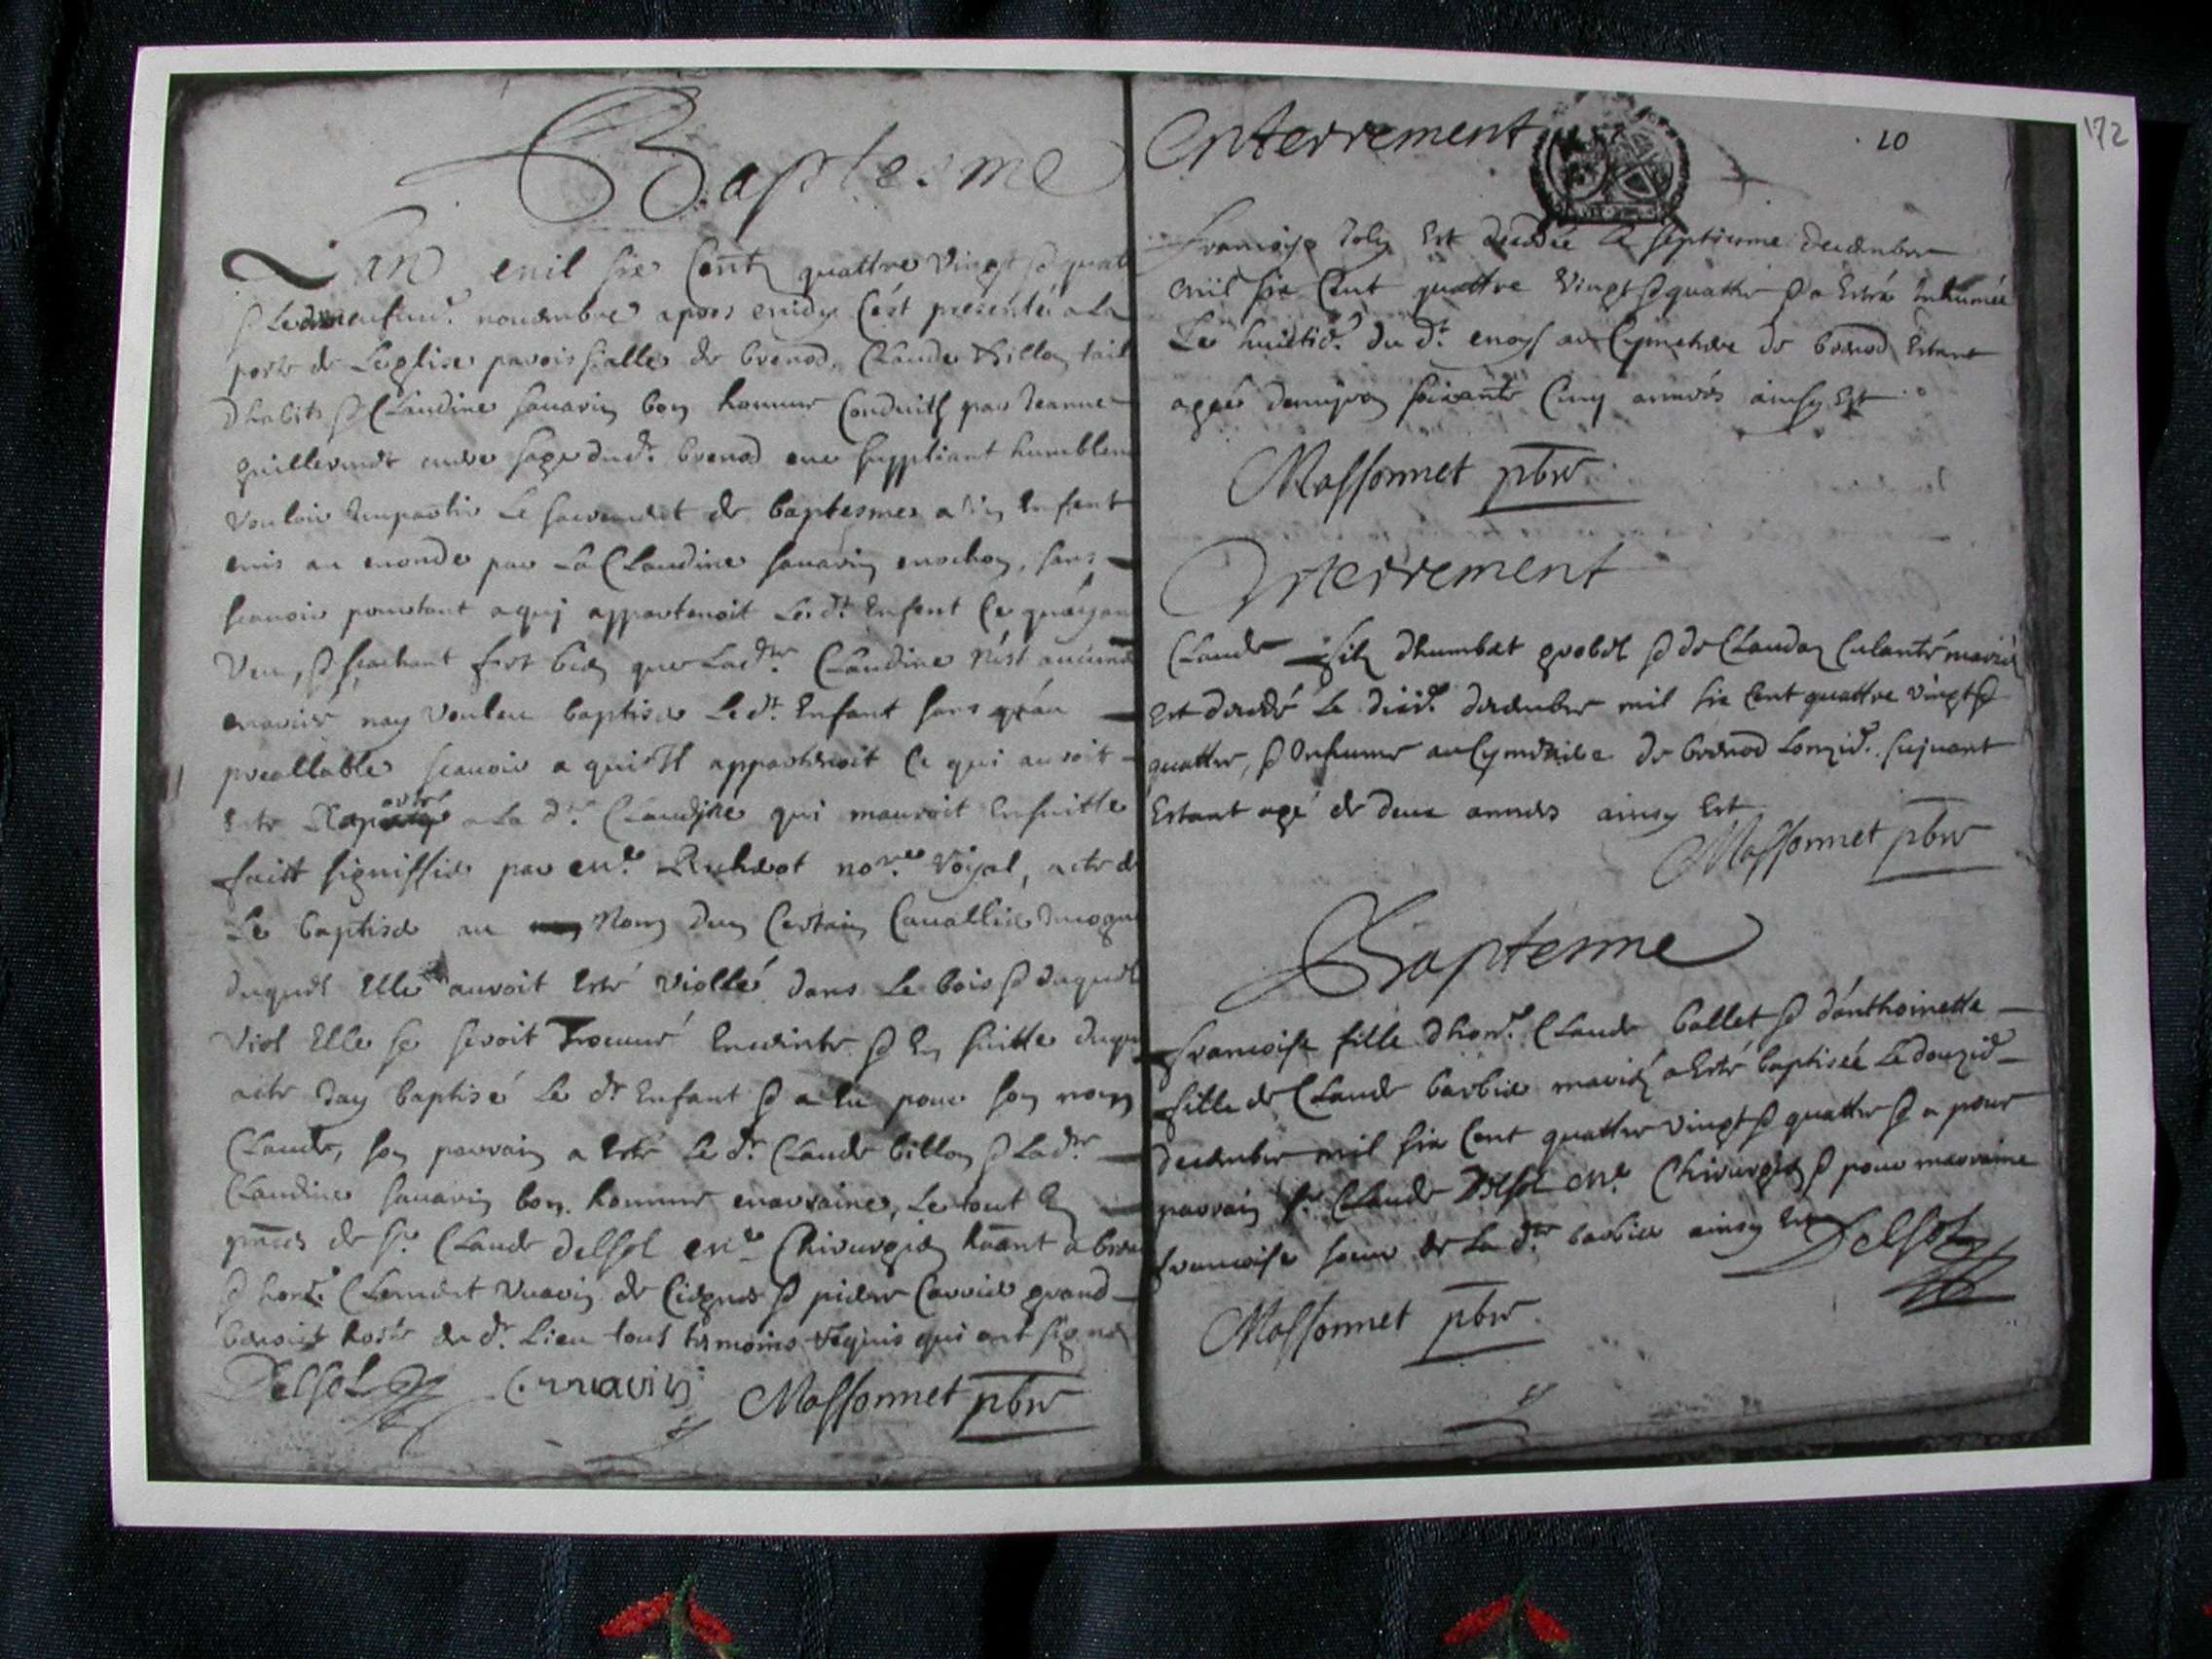 Baptesme
Lan mil six cent quattre vingt & quat
& Le neufuie. nouembre apres midy C'est presenté a La
porte de Leglise parroissialle de brenod, Claude billon tail
dhabits & Claudine sauarin bon homme Conduits par Jeanne
guillermet mere sage dud.t brenod me suppliant humblem
Vouloir Impartir Le sacrement de baptesme a Un Enfant
mis au monde par La Claudine sauarin, sans
scauoir pourtant a quj appartenoit Led.t Enfant Ce quayan
Veu, & scachant fort bien que Lad.te Claudine n'est aucune
mariée nay Vouleu baptiser Le d.t Enfant sans
preallable scauoir a qui Il appartenoit Ce qui auroit
Esté a La d.te Claudine qui mauroit Ensuitte
faitt signiffier par me. no.re Royal, acte de
Le baptiser au Nom dun Certain Cauallier Incognu
duquel Elle auroit Esté viollé dans Le bois & duquel
viol Elle se seroit Trouuée Enceinte & En suitte duqu
acte Jay baptisé Le d.t Enfant & a Eu pour son nom
Claude, son parrain a Esté Le d.t Claude billon & Lad.te
Claudine sauarin bon homme marraine, Le tout En
pnces de Sr. Claude delsol me. Chirurgien hānt a bre
& hon.e Clement Vuarin de & pierre Carrier grand
benoist hoste du d.t Lieu tous tesmoins requis qui ont signé
Delsol C. vuarin Massonnet pbre
Enterrement
10
172
francoise Joly Est decedée Le septiesme decembre
mil six Cent quattre Vingt & quattre & a Esté Inhumée
Le huictie. du d.t moys au Cymetiere de brenod Estant
agée denuiron soixante Cinq années ainsy Est
Massonnet pbre
Enterrement
Claude fils dhumbert grobel & de Claudaz mariés
Est decedé Le dixie. decembre mil six Cent quattre vingt &
quattre, & Inhumé au Cymetiere de brenod Lonzie. suiuant
Estant agé de deux années ainsy Est
Massonnet pbre
Baptesme
francoise fille dhon.e Claude ballet & d'anthoinette
fille de Claude barbier mariés a Esté baptisée Le douzie.
decembre mil six Cent quattre vingt & quattre & a pour
parrain Sr. Claude Delsol me. Chirurgien & pour marraine
francoise soeur de La d.te barbier ainsy Est
Delsol
Massonnet pbre